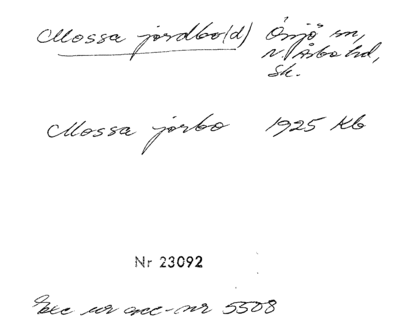 Mossa jordbo(d) Örsjö sn,
N. Åsbo hd,
Sk.
Mossa jorbo 1925 Kb
Nr 23092
Exc ur acc-nr 5508